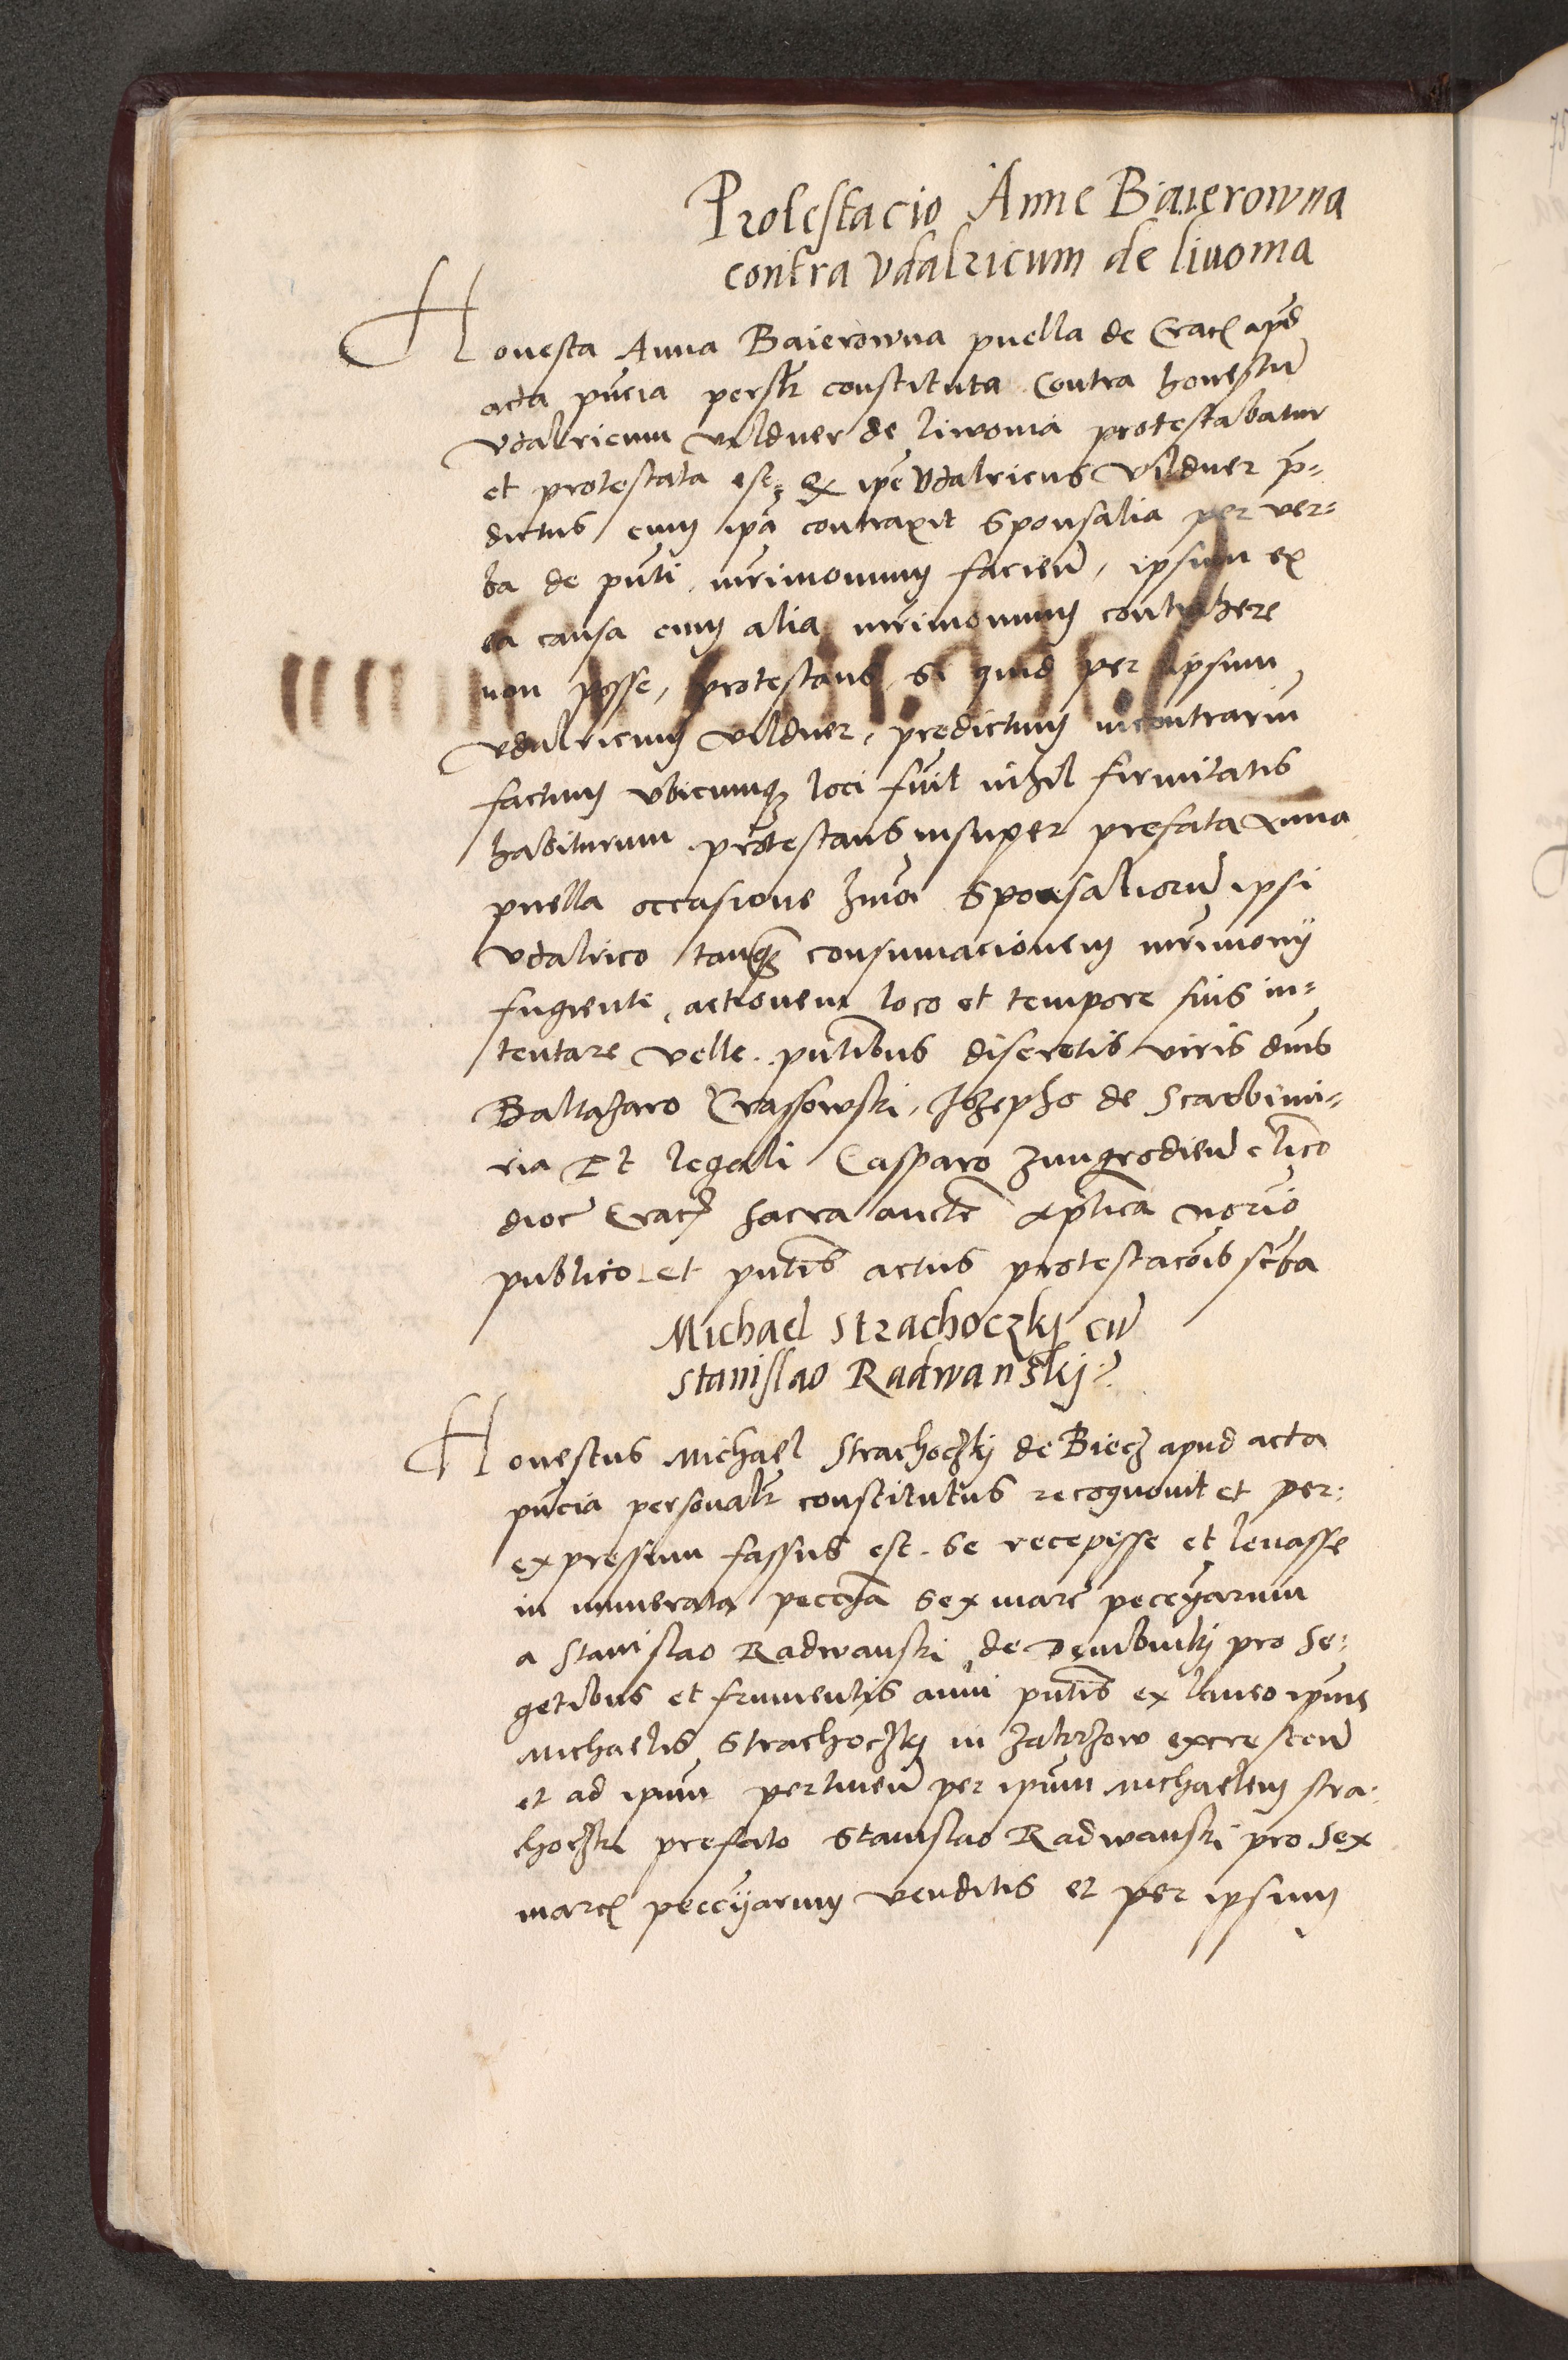 Protestacio Anne Baierowna
contra Vdalricum de livonia
Honesta Anna Baierowna puella de Crac apud
acta pñcia persl̃r constituta Contra honestũ
Vdalricum Vildner de liwonia protestabatur
et protestata est, Qz ip̃e Vdalricus Vildner p̃-
dictus cum ip̃a contraxit Sponsalia per ver-
ba de pñti, mr̃imonium facień, ipsum ex
ea causa cum alia mr̃imonium contrahere
non posse, protestans si quid per ipsum
Vdalricum Vildner, predictum in contrariũ
factum vbicumqz loci fuit nihil firmitatis
habiturum protestans insuper prefata Anna
puella occasione hmõi Sponsaliorũ ipsi
Vdalrico tanqz consumacionem mr̃imonij
fugienti, actionem loco et tempore suis in-
tentare velle. pñtibus discretis viris dñis
Baltazaro Crassowski, Jozepho de Scarbimi-
ria Et legali Casparo clico
dioc Crac sacra aucte Ap̃lica norio
publico et pñtis actus protestacõis scba
Michael Strachoczkj cũ
Stanislao Radwanskj
Honestus Michael Strachoczkj de Biecz apud acta
pñcia personalr constitutus recognouit et per-
expressum fassus est. Se recepisse et leuasse
in numerata peccỹa Sex marc peccỹarum
a Stanislao Radwanski de pro Se-
getibus et frumentis anni pñtis ex laneo ipius
Michaelis Strachoczkj in excresceń
et ad ipm̃ pertineń per ipm̃ Michaelem Stra-
hoczki prefato Stanislao Radwanski pro Sex
marc peccỹarum venditis et per ipsum